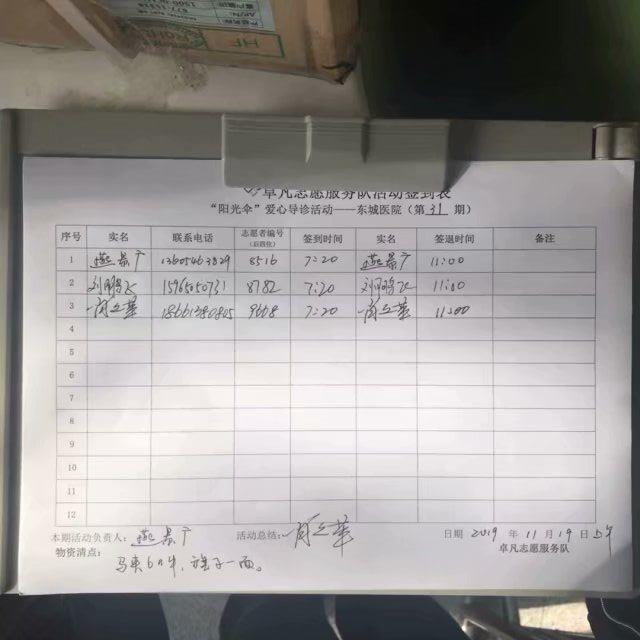 卓凡志愿服务队活动签到表
“阳光伞”爱心导诊活动——东城医院（第 31 期）
序号 实名 联系电话 志愿者编号（后四位） 签到时间 实名 签退时间 备注
1 燕景广 13605463829 8516 7:20 燕景广 11:00
2 刘鹏飞 15965050731 8782 7:20 刘鹏飞 11:00
3 18661380805 9668 7:20 11:00
4
5
6
7
8
9
10
11
12
本期活动负责人：燕景广 活动总结： 日期 2019 年 11 月 19 日 上午
物资清点： 卓凡志愿服务队
马夹6件，旗子一面。